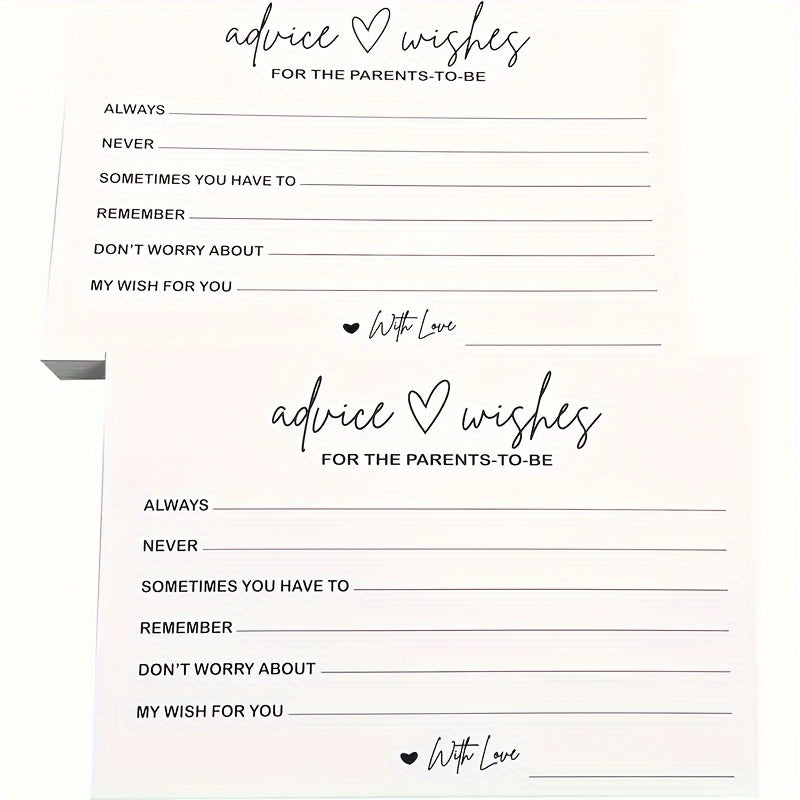 advice ♡ wishes
FOR THE PARENTS-TO-BE
ALWAYS
NEVER
SOMETIMES YOU HAVE TO
REMEMBER
DON'T WORRY ABOUT
MY WISH FOR YOU
♥ With Love
advice ♡ wishes
FOR THE PARENTS-TO-BE
ALWAYS
NEVER
SOMETIMES YOU HAVE TO
REMEMBER
DON'T WORRY ABOUT
MY WISH FOR YOU
♥ With Love